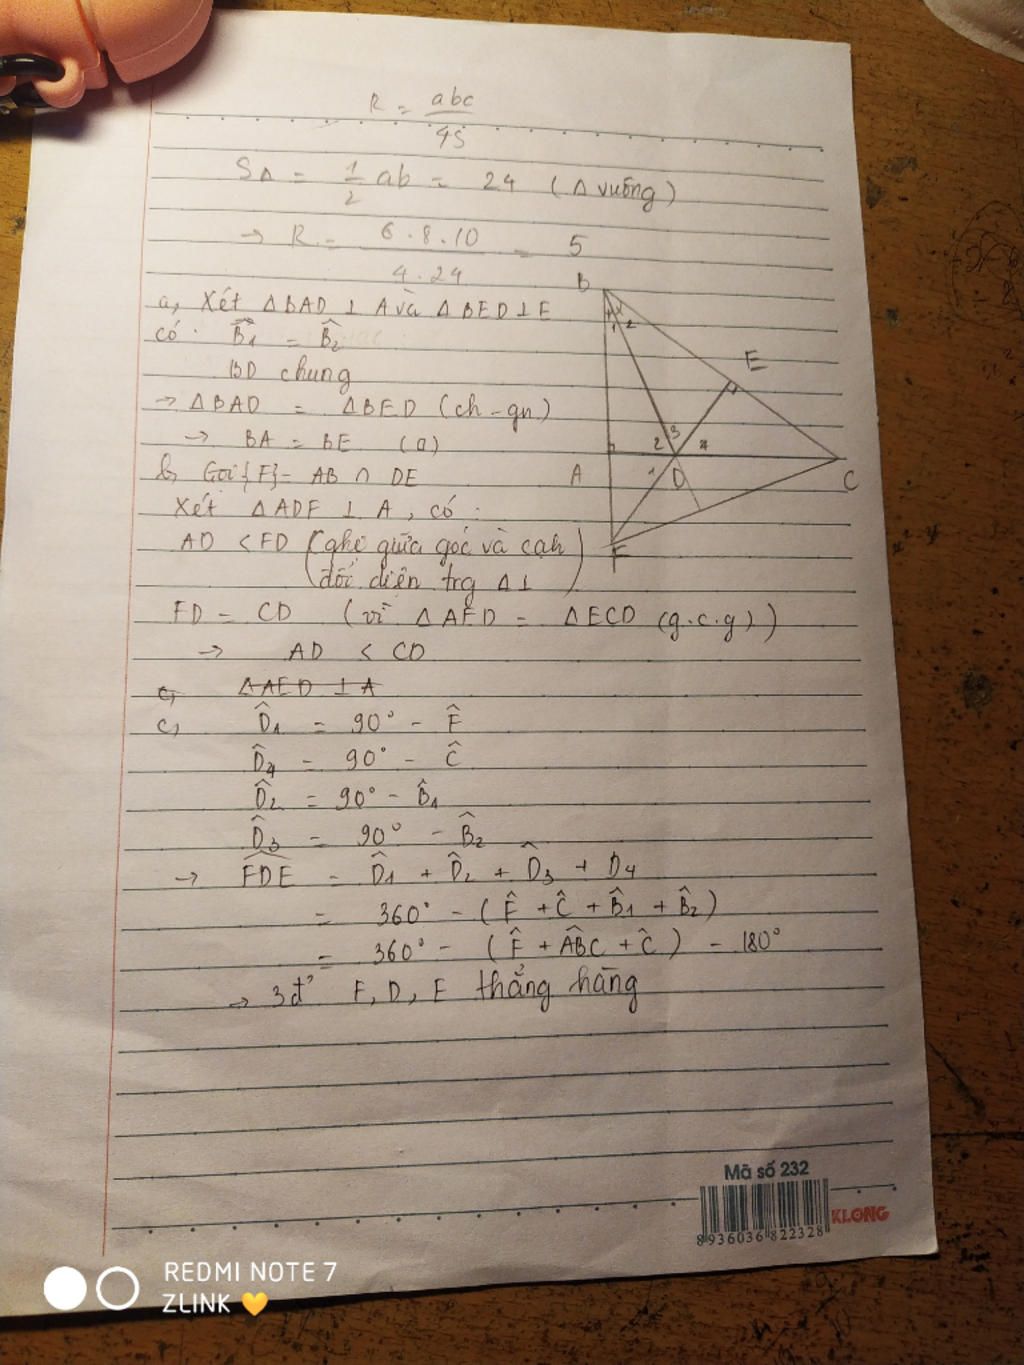 R = abc
4S
S△ = 1/2 ab = 24 (△ vuông)
→ R = 6.8.10 = 5
4.24
a, Xét △BAD ⊥ A và △BED ⊥ E
có: B̂1 = B̂2
BD chung
→ △BAD = △BED (ch-gn)
→ BA = BE (a)
b, Gọi {F} = AB ∩ DE
Xét △ADF ⊥ A, có:
AD < FD (qhệ giữa góc và cạh
đối diện trg △⊥)
FD = CD (vì △AFD = △ECD (g.c.g))
→ AD < CD
c, △AED ⊥ A
c, D̂1 = 90° - F̂
D̂4 = 90° - Ĉ
D̂2 = 90° - B̂1
D̂3 = 90° - B̂2
→ FDE = D̂1 + D̂2 + D̂3 + D4
= 360° - (F̂ + Ĉ + B̂1 + B̂2)
= 360° - (F̂ + ABC + Ĉ) = 180°
→ 3đ' F, D, E thẳng hàng
B
1 2
E
2 3 4
A 1 D C
F
Mã số 232
8 936036 822328
KLONG
REDMI NOTE 7
ZLINK 💛